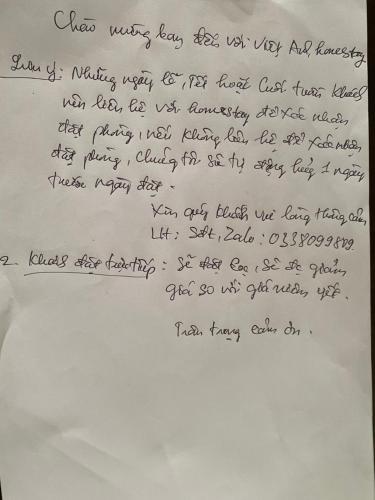 Chào mừng bạn đến với Việt Anh homestay
Lưu ý: Những ngày lễ, Tết hoặc cuối tuần khách
nên liên hệ với homestay để xác nhận
đặt phòng, nếu không liên hệ để xác nhận
đặt phòng, chúng tôi sẽ tự động hủy 1 ngày
trước ngày đặt.
Xin quý khách vui lòng thông cảm
LH: Sđt, Zalo: 0338099889.
2. Khách đặt trực tiếp: Sẽ đặt cọc, sẽ đc giảm
giá so với giá niêm yết.
Trân trọng cảm ơn.